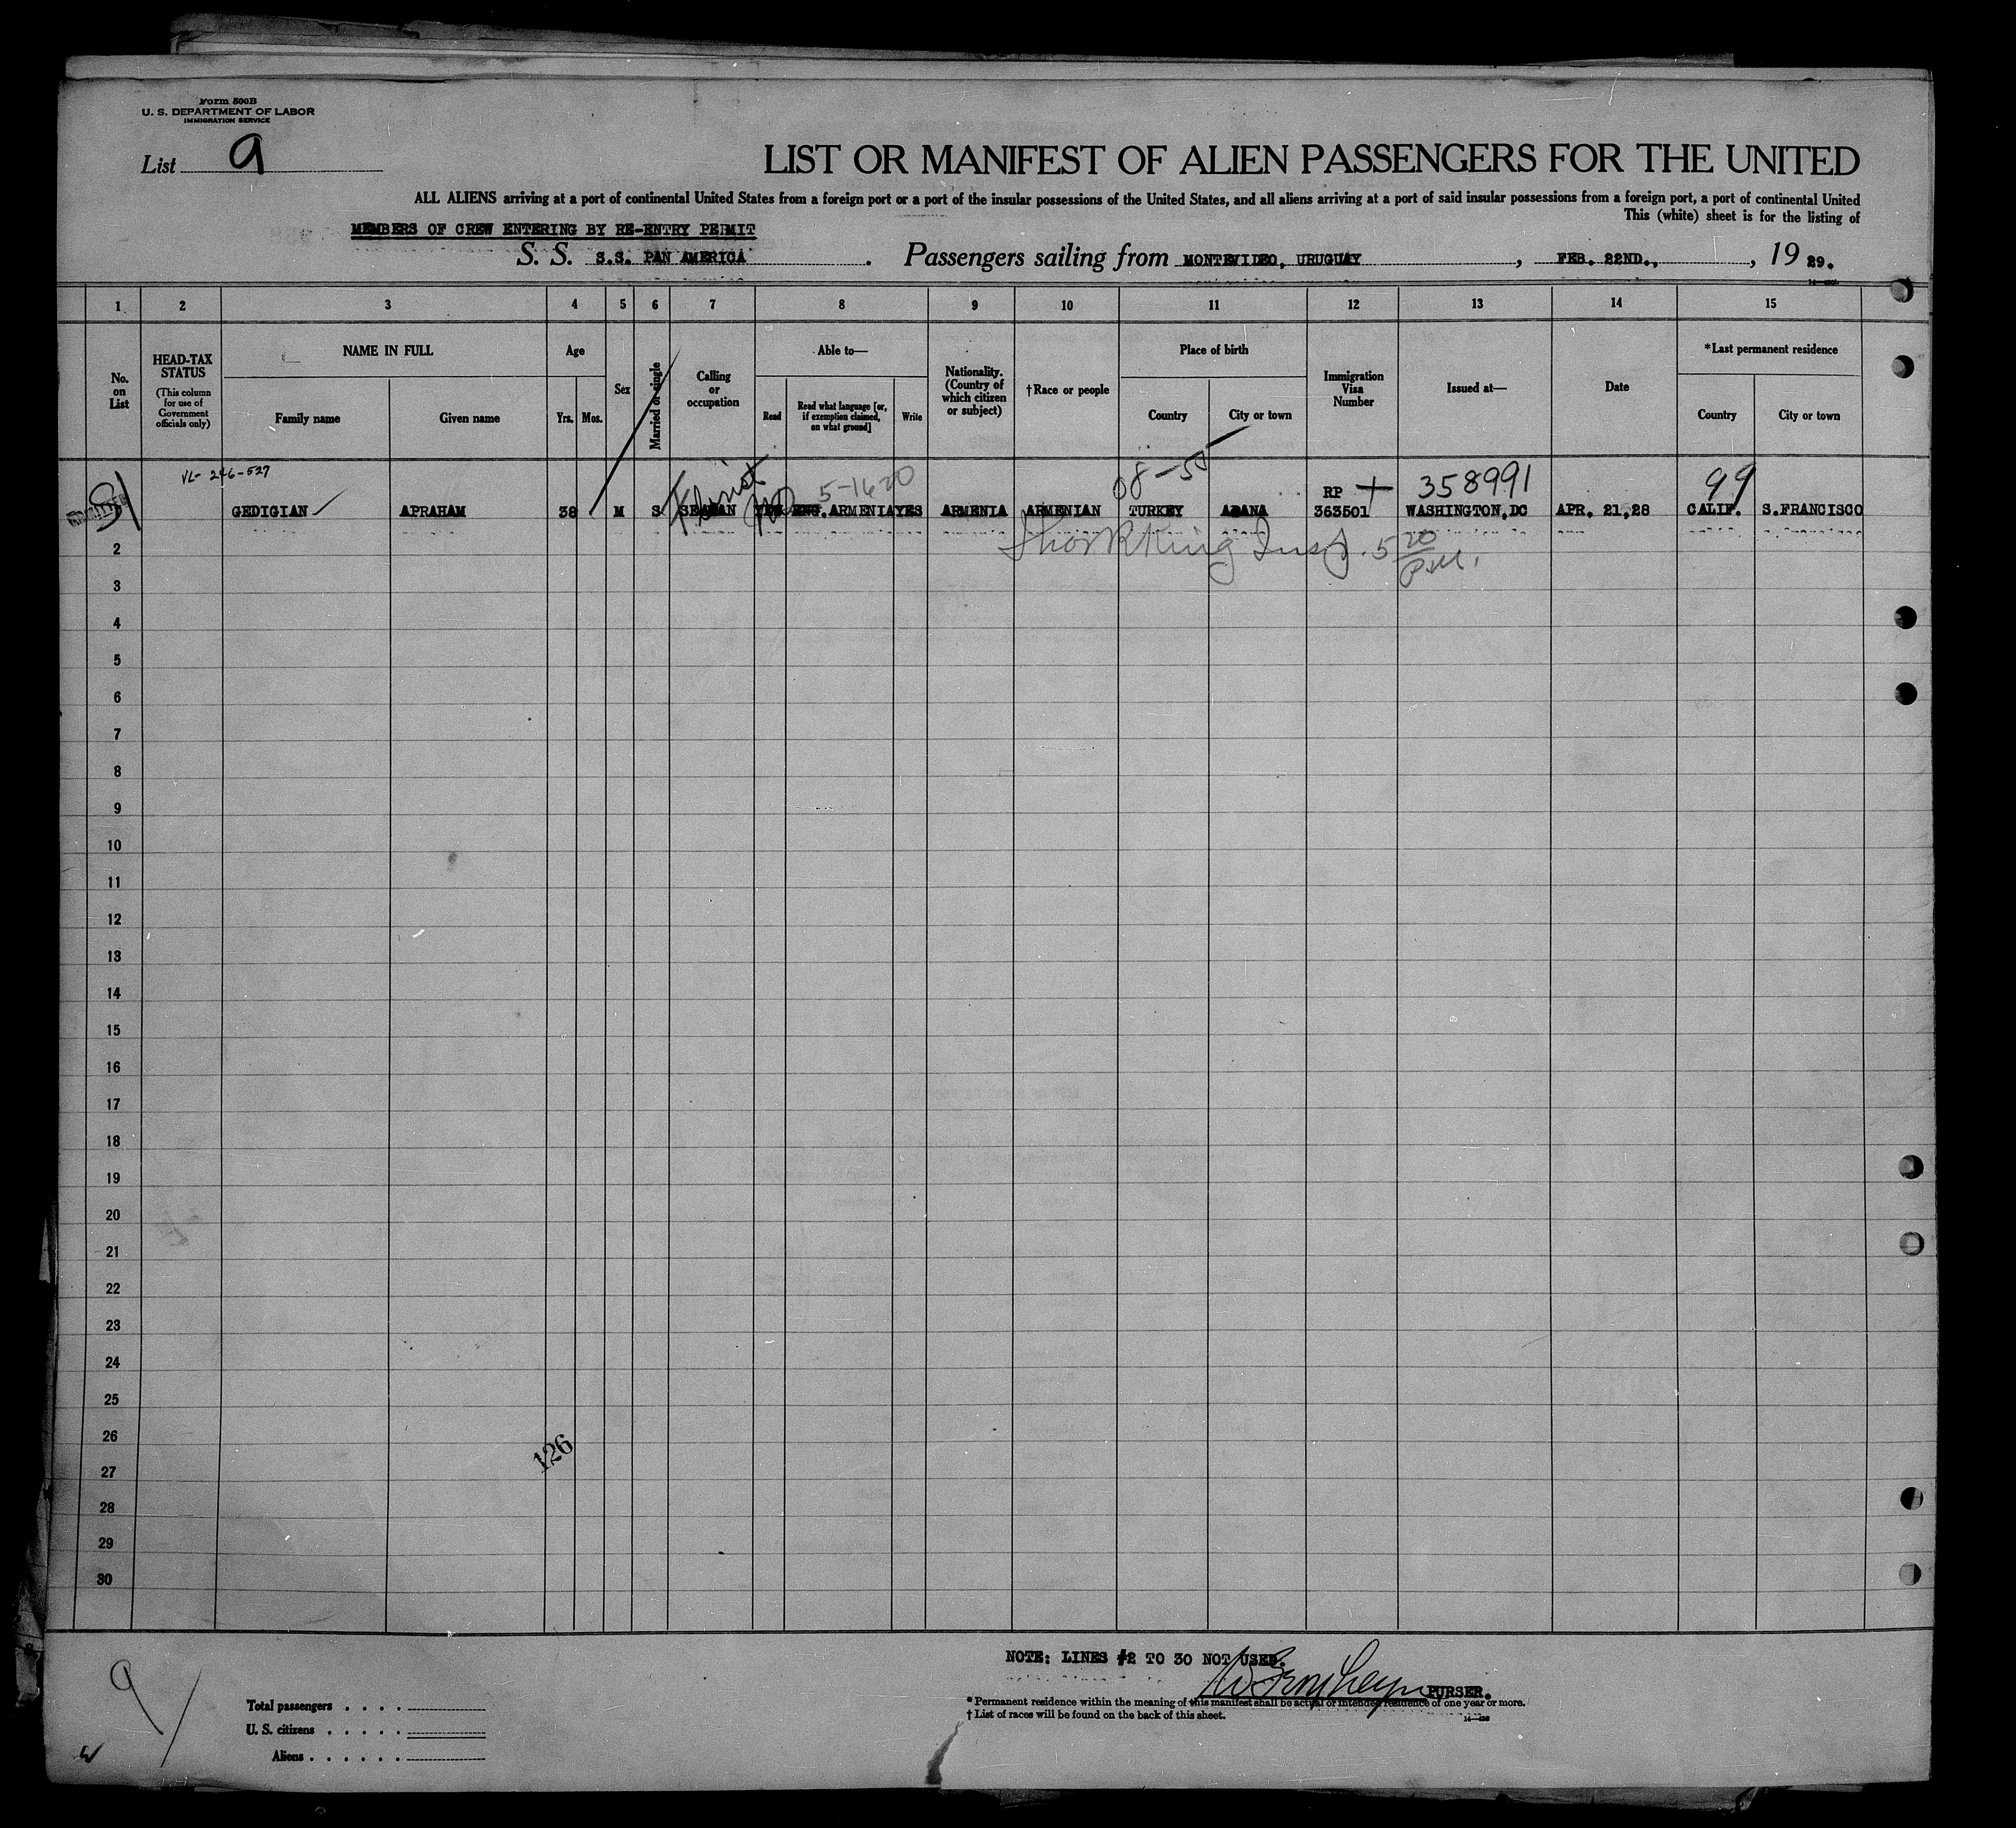 Form 500B
U. S. DEPARTMENT OF LABOR
IMMIGRATION SERVICE
List 9
LIST OR MANIFEST OF ALIEN PASSENGERS FOR THE UNITED
ALL ALIENS arriving at a port of continental United States from a foreign port or a port of the insular possessions of the United States, and all aliens arriving at a port of said insular possessions from a foreign port, a port of continental United
This (white) sheet is for the listing of
MEMBERS OF CREW ENTERING BY RE-ENTRY PERMIT
S. S. S.S. PAN AMERICA. Passengers sailing from MONTEVIDEO, URUGUAY, FEB. 22ND., , 19 29.
1 2 3 4 5 6 7 8 9 10 11 12 13 14 15
No. on List
HEAD-TAX STATUS
(This column for use of Government officials only)
NAME IN FULL
Family name
Given name
Age
Yrs. Mos.
Sex
Married or single
Calling or occupation
Able to—
Read
Read what language [or, if exemption claimed, on what ground]
Write
Nationality. (Country of which citizen or subject)
†Race or people
Place of birth
Country
City or town
Immigration Visa Number
Issued at—
Date
*Last permanent residence
Country
City or town
VL- 246-527
5-1620
08-55
RP
358991
99
GEDIGIAN APRAHAM 38 M S SEAMAN YES ENG. ARMENIA YES ARMENIA ARMENIAN TURKEY ADANA 363501 WASHINGTON, DC APR. 21,28 CALIF. S.FRANCISCO
Insp. 5 20 P.M.
2
3
4
5
6
7
8
9
10
11
12
13
14
15
16
17
18
19
20
21
22
23
24
25
26
27
28
29
30
126
NOTE: LINES #2 TO 30 NOT USED.
PURSER.
9
Total passengers
U. S. citizens
Aliens
* Permanent residence within the meaning of this manifest shall be actual or intended residence of one year or more.
† List of races will be found on the back of this sheet.